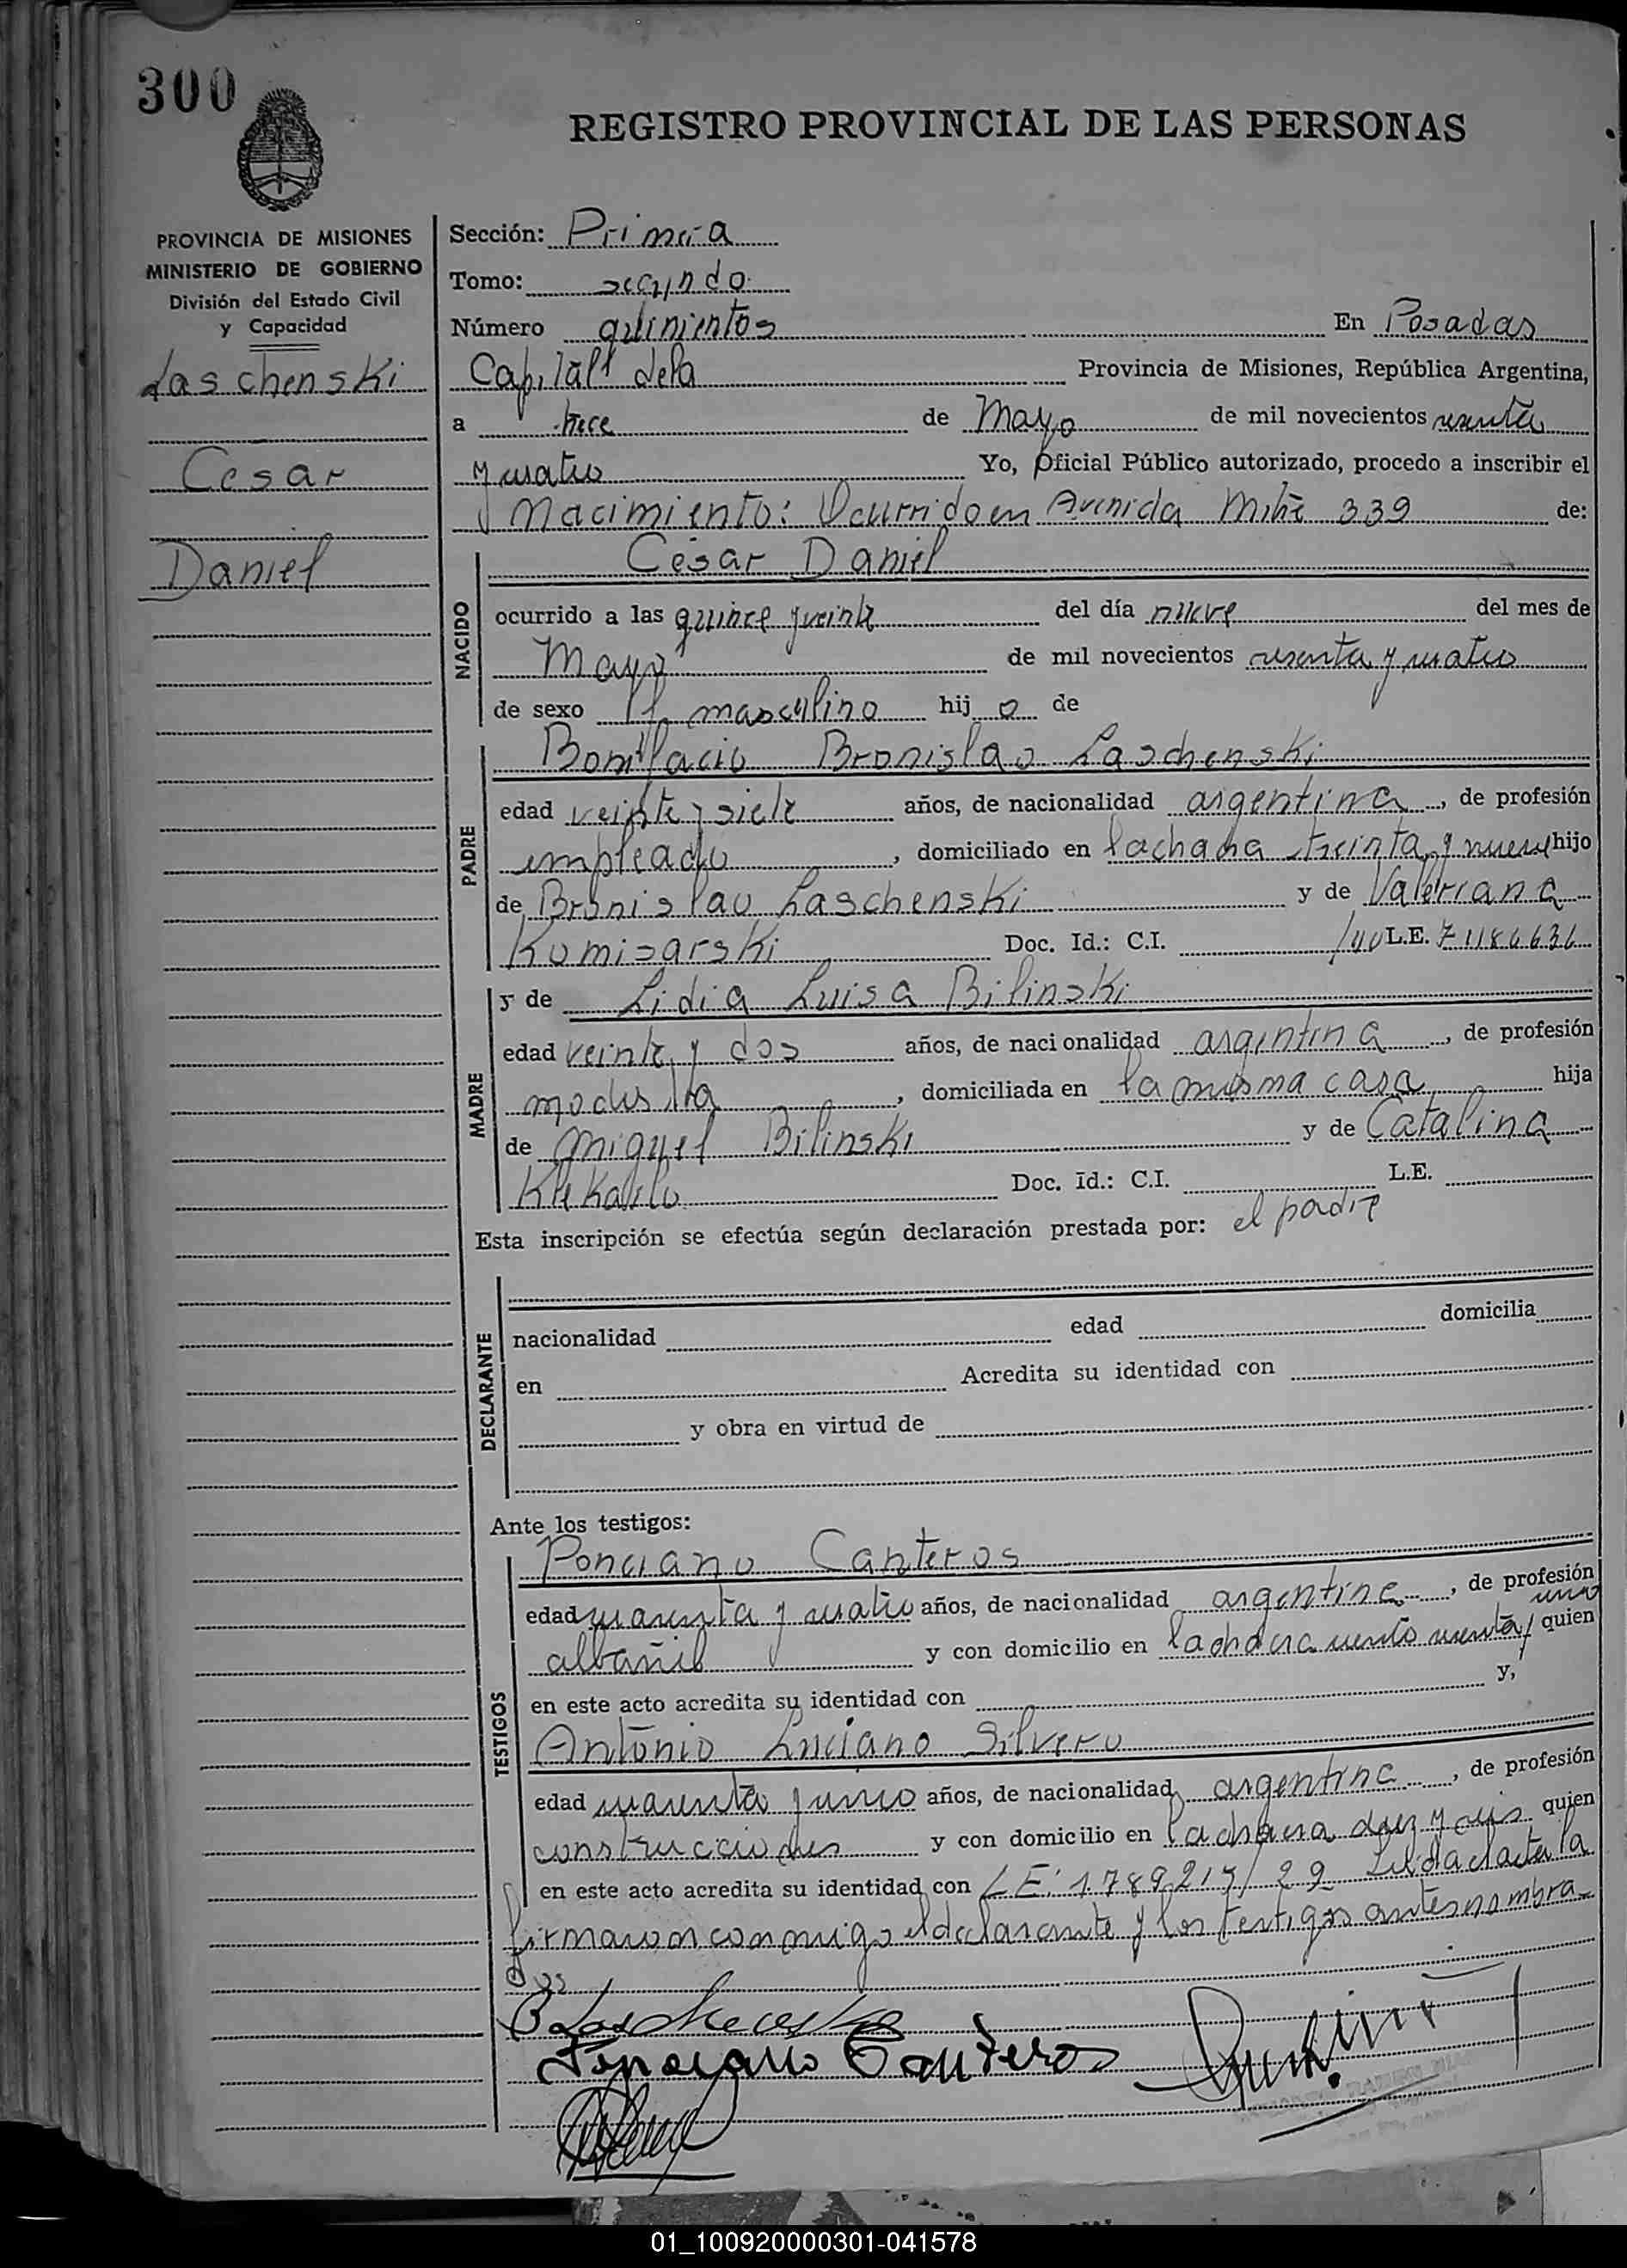 300
REGISTRO PROVINCIAL DE LAS PERSONAS
PROVINCIA DE MISIONES
MINISTERIO DE GOBIERNO
División del Estado Civil
y Capacidad
Laschenski
Cesar
Daniel
Sección: Primera
Tomo: segundo
Número quinientos En Posadas
Capital de la Provincia de Misiones, República Argentina,
a trece de Mayo de mil novecientos sesenta
y cuatro Yo, Oficial Público autorizado, procedo a inscribir el
Nacimiento: Ocurrido en Avenida Mitre 339 de:
NACIDO
César Daniel
ocurrido a las quince y veinte del día nueve del mes de
Mayo de mil novecientos sesenta y cuatro
de sexo masculino hij o de
PADRE
Bonifacio Bronislao Laschenski
edad veinte y siete años, de nacionalidad argentina, de profesión
empleado, domiciliado en la chacra treinta y nueve hijo
de Bronislao Laschenski y de Valeriana
Komisarski Doc. Id.: C.I. L.E.
MADRE
y de Lidia Luisa Bilinski
edad veinte y dos años, de nacionalidad argentina, de profesión
modista, domiciliada en la misma casa hija
de Miguel Bilinski y de Catalina
Doc. Id.: C.I. L.E.
Esta inscripción se efectúa según declaración prestada por: el padre
DECLARANTE
nacionalidad edad domicilia
en Acredita su identidad con
y obra en virtud de
Ante los testigos:
TESTIGOS
Ponciano Canteros
edad cuarenta y cuatro años, de nacionalidad argentina, de profesión
albañil y con domicilio en la chacra ciento sesenta / uno quien
en este acto acredita su identidad con y,
Antonio Luciano Silvero
edad cuarenta y cinco años, de nacionalidad argentina, de profesión
construcciones y con domicilio en la chacra diez y seis quien
en este acto acredita su identidad con L E: Leida el acta la
firmaron conmigo el declarante y los testigos antes nombra-
dos
B Laschenski
Ponciano Canteros
01_100920000301-041578